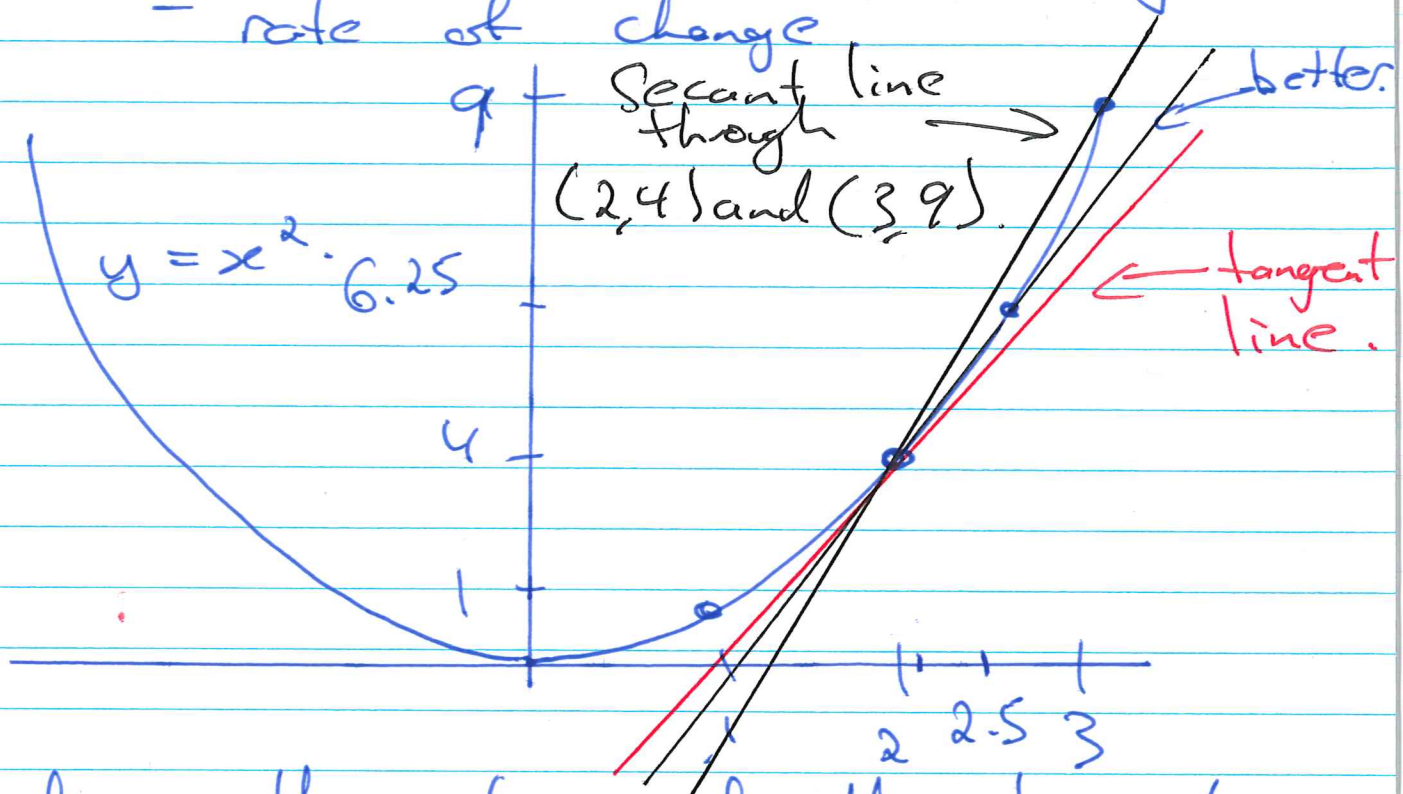 – rate of change
9
Secant line
though
(2,4) and (3,9).
better.
y = x².
6.25
tangent
line.
4
1
1
2
2.5
3